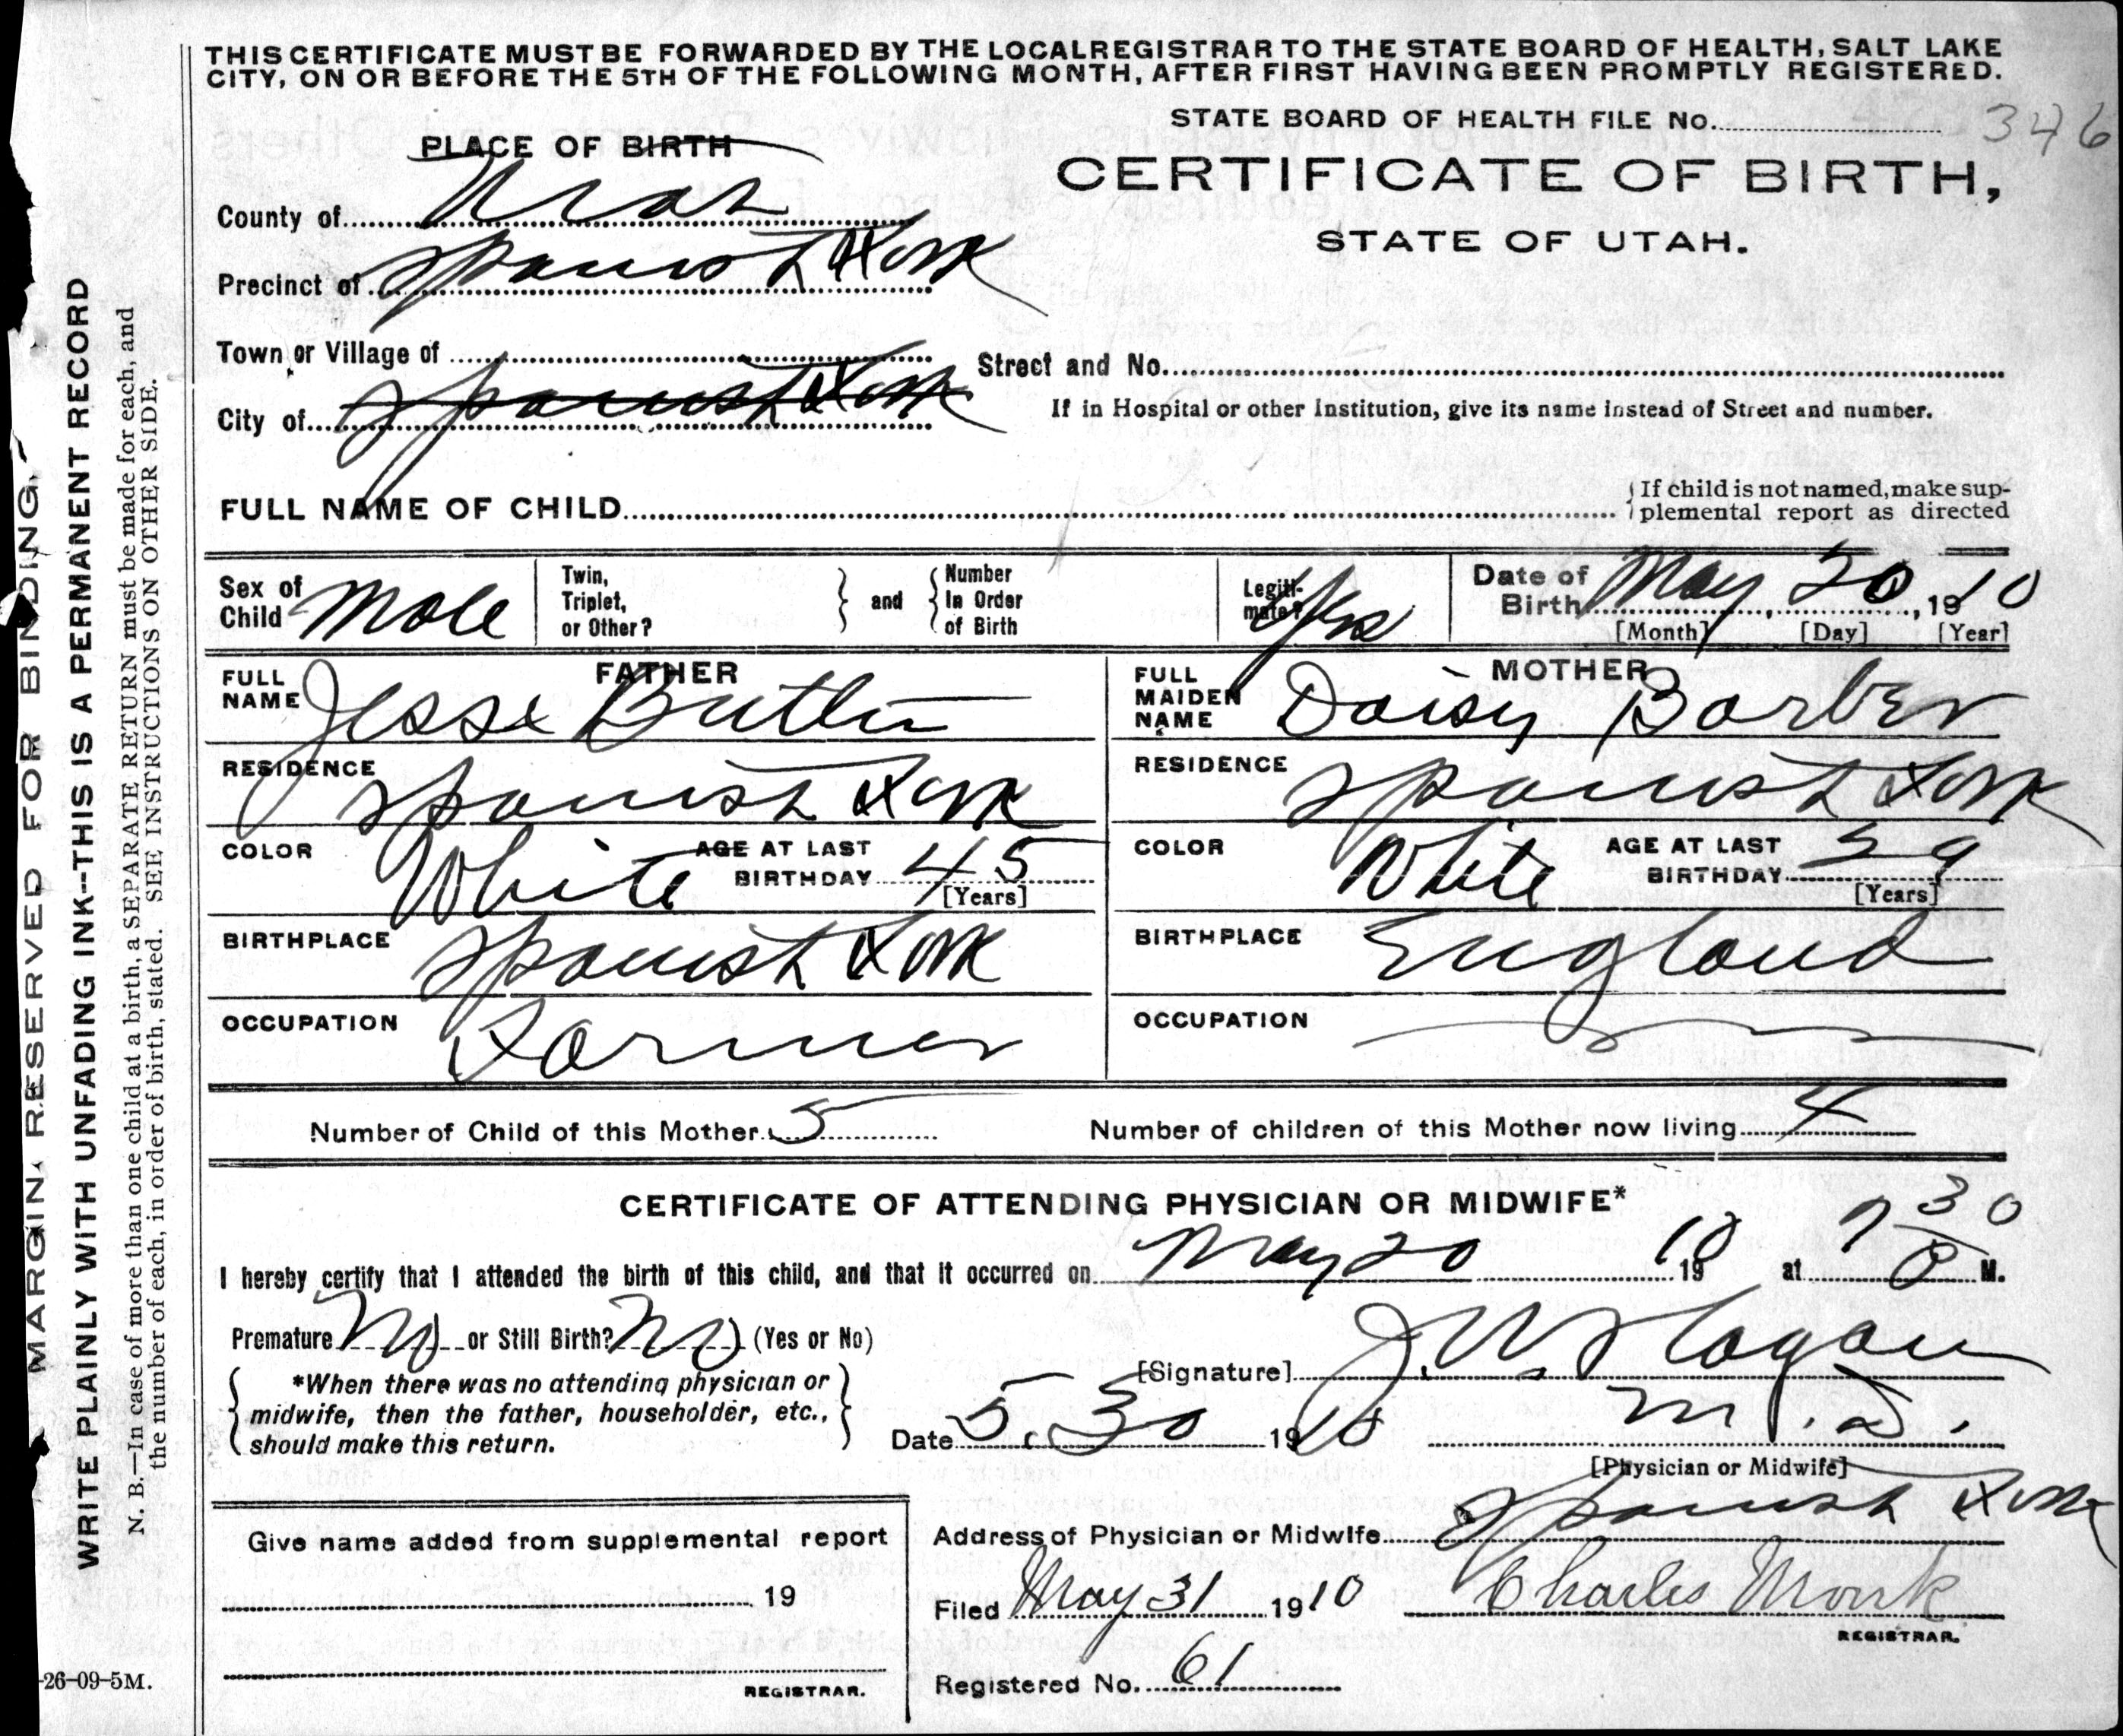 THIS CERTIFICATE MUST BE FORWARDED BY THE LOCAL REGISTRAR TO THE STATE BOARD OF HEALTH, SALT LAKE
CITY, ON OR BEFORE THE 5TH OF THE FOLLOWING MONTH, AFTER FIRST HAVING BEEN PROMPTLY REGISTERED.
STATE BOARD OF HEALTH FILE No. 346
PLACE OF BIRTH
CERTIFICATE OF BIRTH,
STATE OF UTAH.
County of Utah
Precinct of Spanish Fork
Town or Village of
Street and No.
City of Spanish Fork
If in Hospital or other Institution, give its name instead of Street and number.
FULL NAME OF CHILD
If child is not named, make sup-
plemental report as directed
Sex of Child Male
Twin, Triplet, or Other?
and
Number In Order of Birth
Legiti-mate? Yes
Date of Birth May 20, 1910
[Month] [Day] [Year]
FATHER
FULL NAME Jesse Butler
RESIDENCE Spanish Fork
COLOR White AGE AT LAST BIRTHDAY 45 [Years]
BIRTHPLACE Spanish Fork
OCCUPATION Farmer
MOTHER
FULL MAIDEN NAME Daisy Barber
RESIDENCE Spanish Fork
COLOR White AGE AT LAST BIRTHDAY 39 [Years]
BIRTHPLACE England
OCCUPATION
Number of Child of this Mother 5 Number of children of this Mother now living 4
CERTIFICATE OF ATTENDING PHYSICIAN OR MIDWIFE*
I hereby certify that I attended the birth of this child, and that it occurred on May 20 1910 at 30 M.
Premature No or Still Birth? No (Yes or No)
*When there was no attending physician or
midwife, then the father, householder, etc.,
should make this return.
[Signature] J. W.
Date 5. 30 1910 M. D.
[Physician or Midwife]
Address of Physician or Midwife Spanish Fork
Give name added from supplemental report
19
REGISTRAR.
Filed May 31 1910 Charles Monk
REGISTRAR.
Registered No. 61
MARGIN RESERVED FOR BINDING.
WRITE PLAINLY WITH UNFADING INK--THIS IS A PERMANENT RECORD
N. B.—In case of more than one child at a birth, a SEPARATE RETURN must be made for each, and
the number of each, in order of birth, stated. SEE INSTRUCTIONS ON OTHER SIDE.
-26-09-5M.